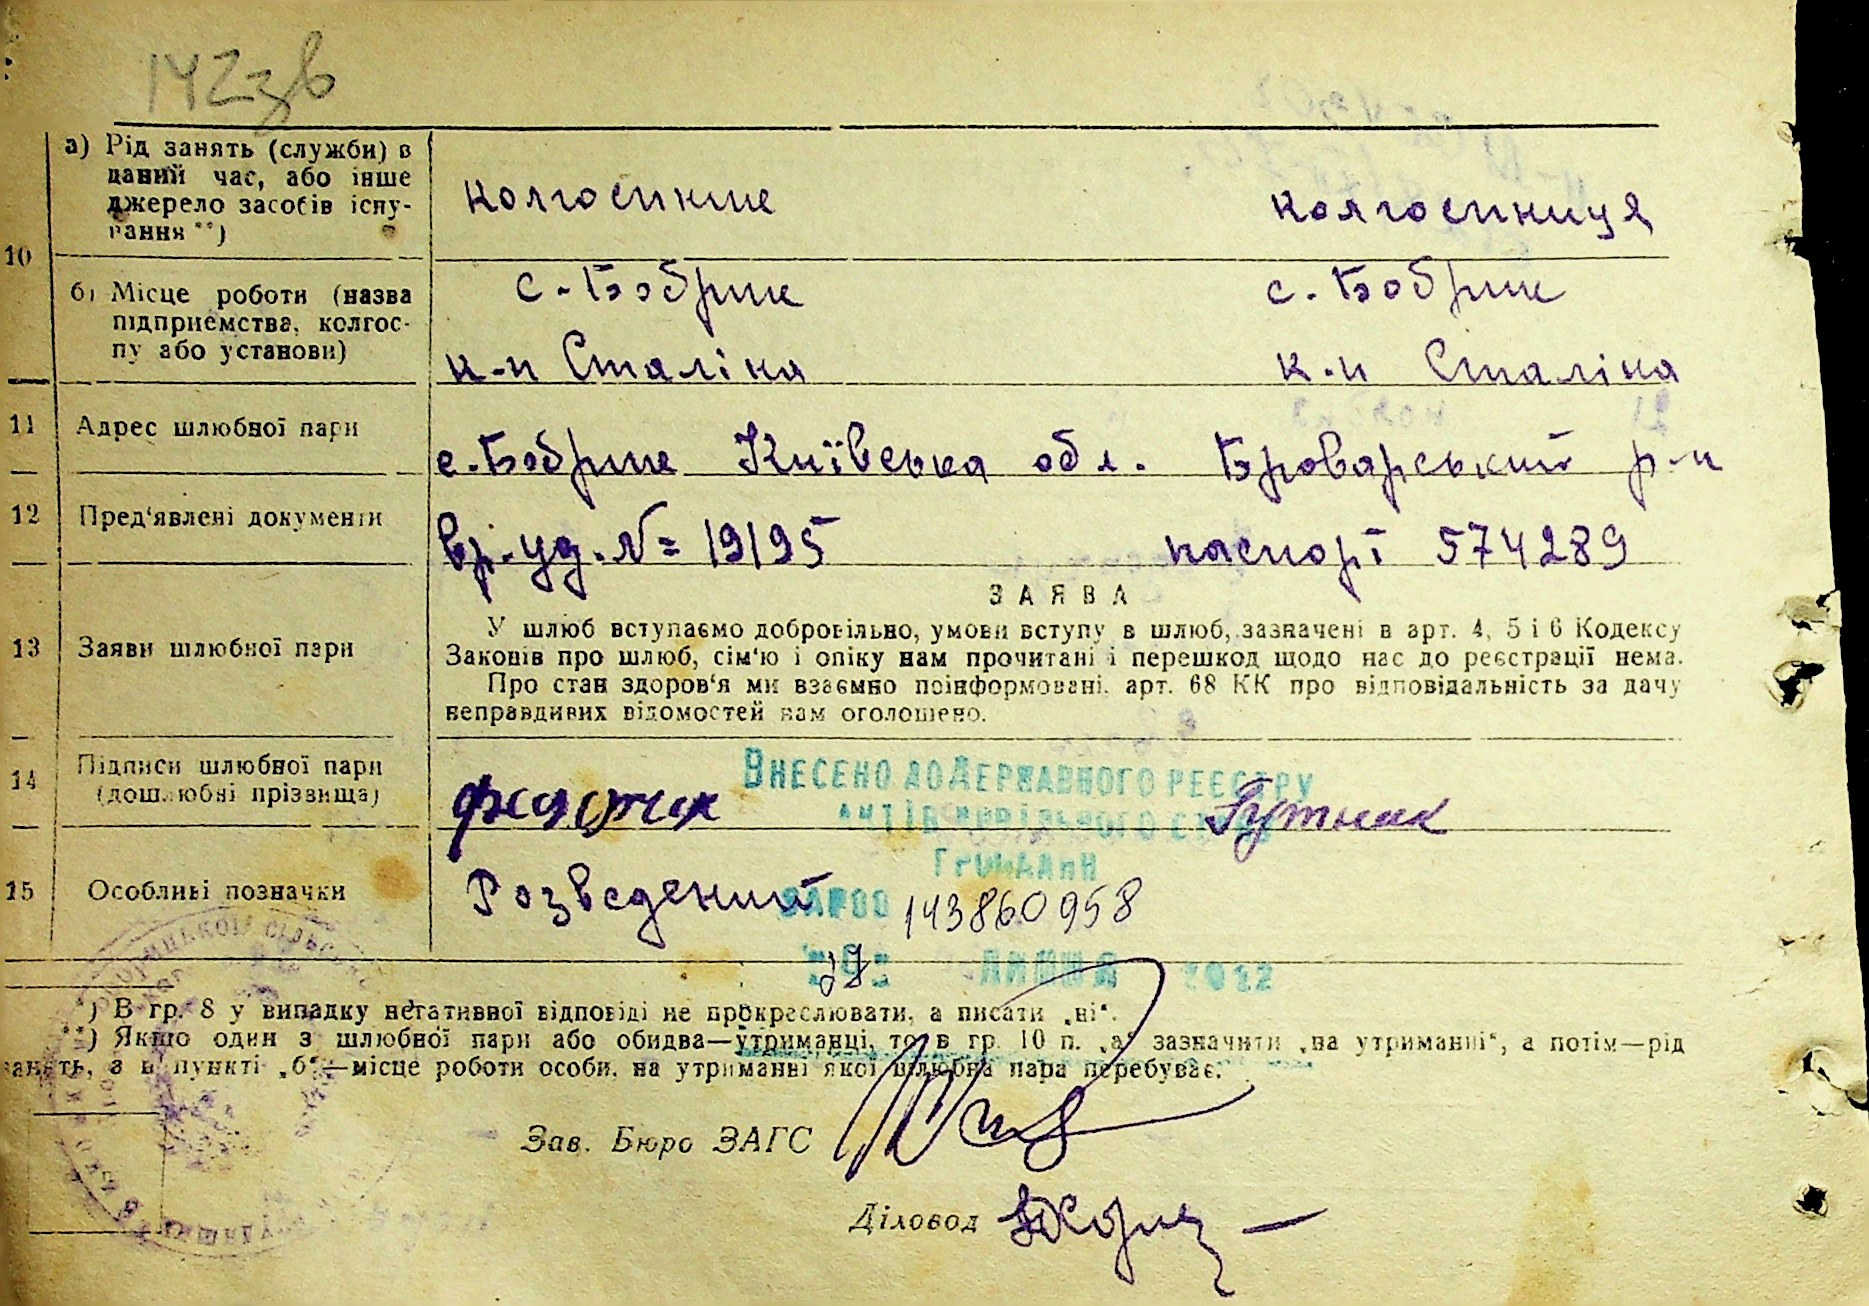 142зв
а) Рід занять (служби) в
даний час, або інше
джерело засобів існу-
вання **)
колгоспник
колгоспниця
10
б) Місце роботи (назва
підприємства, колгос-
пу або установи)
с. Бобрик
с. Бобрик
к-п Сталіна
к-п Сталіна
11 Адрес шлюбної пари
с. Бобрик Київська обл. Броварський р-н
12 Пред'явлені документи
вр. уд. № 19195
паспорт 574289
13 Заяви шлюбної пари
ЗАЯВА
У шлюб вступаємо добровільно, умови вступу в шлюб, зазначені в арт. 4, 5 і 6 Кодексу
Законів про шлюб, сім'ю і опіку нам прочитані і перешкод щодо нас до реєстрації нема.
Про стан здоров'я ми взаємно поінформовані. арт. 68 КК про відповідальність за дачу
неправдивих відомостей нам оголошено.
14 Підписи шлюбної пари
(дошлюбні прізвища)
ВНЕСЕНО ДО ДЕРЖАВНОГО РЕЄСТРУ
АКТІВ ЦИВІЛЬНОГО СТАНУ
ГРОМАДЯН
Гутник
15 Особливі позначки
Розведений
ЗАПИС 143860958
липня 2012
*) В гр. 8 у випадку негативної відповіді не прокреслювати, а писати „ні“.
**) Якщо один з шлюбної пари або обидва—утриманці, то в гр. 10 п. „а“ зазначити „на утриманні“, а потім—рід
занять, а в пункті „б“—місце роботи особи, на утриманні якої шлюбна пара перебуває.
Зав. Бюро ЗАГС
Діловод